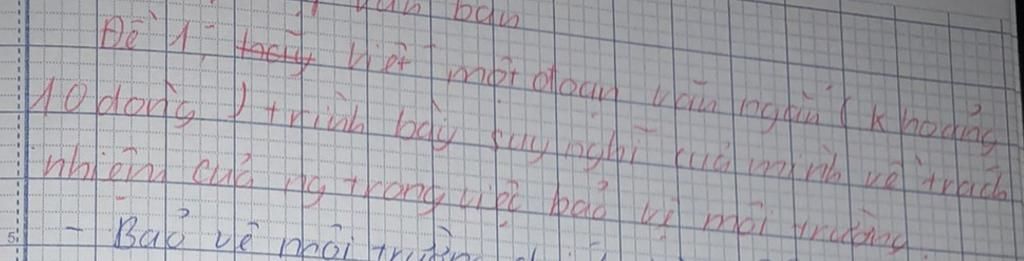 văn bản
Đề 1: viết một đoạn văn ngắn ( khoảng
10 dòng ) trình bày suy nghĩ của mình về trách
nhiệm của ng trong việc bảo vệ môi trường
- Bảo vệ môi trường